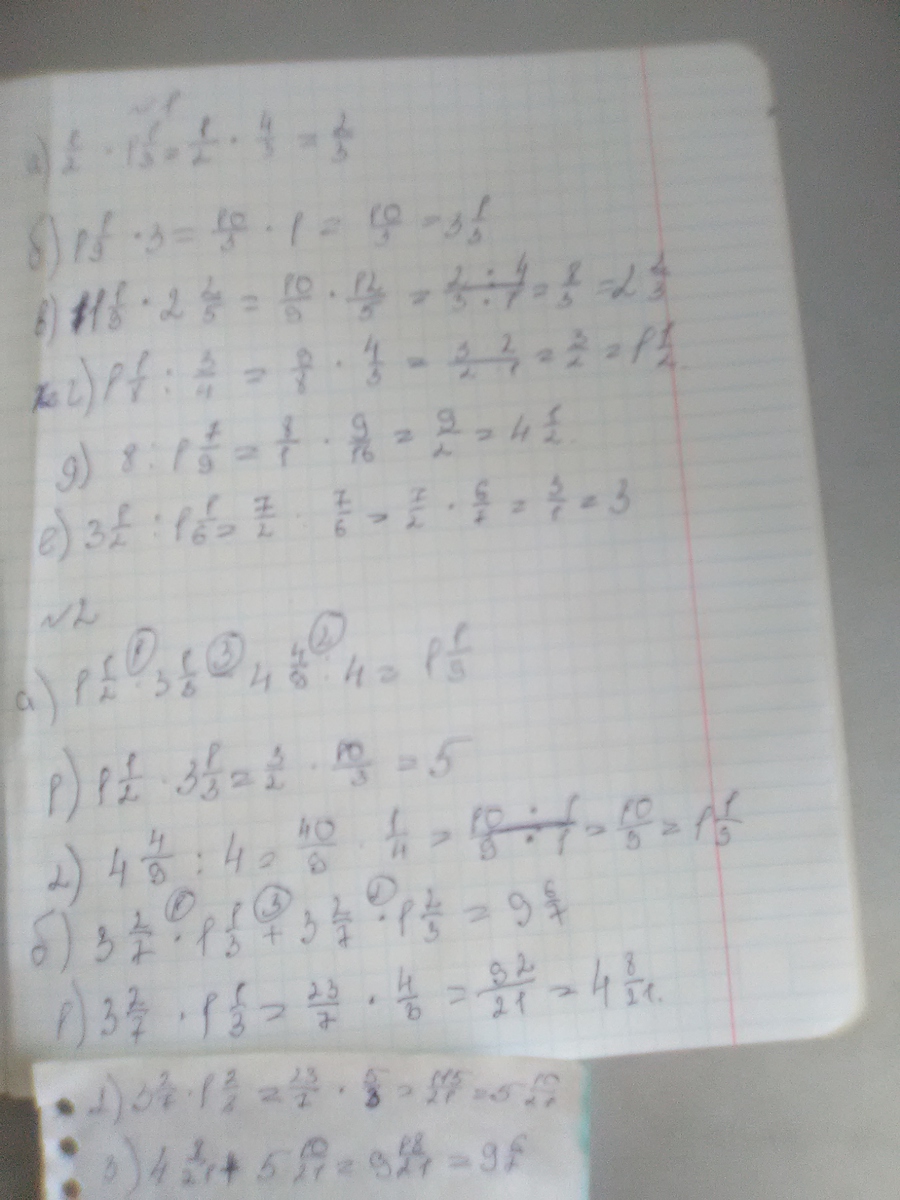 №1
а) 1/2 · 1 1/3 = 1/2 · 4/3 = 2/3
б) 1 1/9 · 3 = 10/3 · 1 = 10/3 = 3 1/3
в) 1 1/9 · 2 2/5 = 10/9 · 12/5 = 2 · 4 / 3 · 1 = 8/3 = 2 2/3
г) 1 1/8 : 3/4 = 9/8 · 4/3 = 3 · 2 / 2 · 1 = 3/2 = 1 1/2.
д) 8 : 1 7/9 = 8/1 · 9/16 = 9/2 = 4 1/2.
е) 3 1/2 : 1 1/6 = 7/2 · 7/6 = 7/2 · 6/7 = 3/1 = 3
№2
а) 1 1/2 · 3 1/3 - 4 4/9 : 4 = 1 1/9
1) 1 1/2 · 3 1/3 = 3/2 · 10/3 = 5
2) 4 4/9 : 4 = 40/9 · 1/4 = 10 · 1 / 9 · 1 = 10/9 = 1 1/9
б) 3 2/7 · 1 1/3 + 3 2/7 · 1 2/3 = 9 6/7
1) 3 2/7 · 1 1/3 = 23/7 · 4/3 = 92/21 = 4 8/21.
2) 3 2/7 · 1 2/3 = 23/7 · 5/3 = 115/21 = 5 10/21
3) 4 8/21 + 5 10/21 = 9 18/21 = 9 6/7